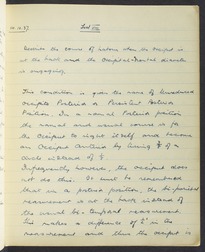 Lect VIII
Describe the course of labour when the occiput is
at the back and the occipito-frontal diameter
is engaging.
This condition is given the name of Unreduced
occipito Posterior or Persistent Posterior
Position. In a normal Posterior position
the usual and natural course is for
the Occiput to right itself and become
an Occiput Anterior by turning 3/8 of a
circle instead of 1/8.
Infrequently however, the occiput does
not do this. It must be remembered
that in a posterior position, the bi-parietal
measurement is at the back instead of
the usual bi-temporal measurement.
This makes a difference of in the
measurement and thus the occiput is